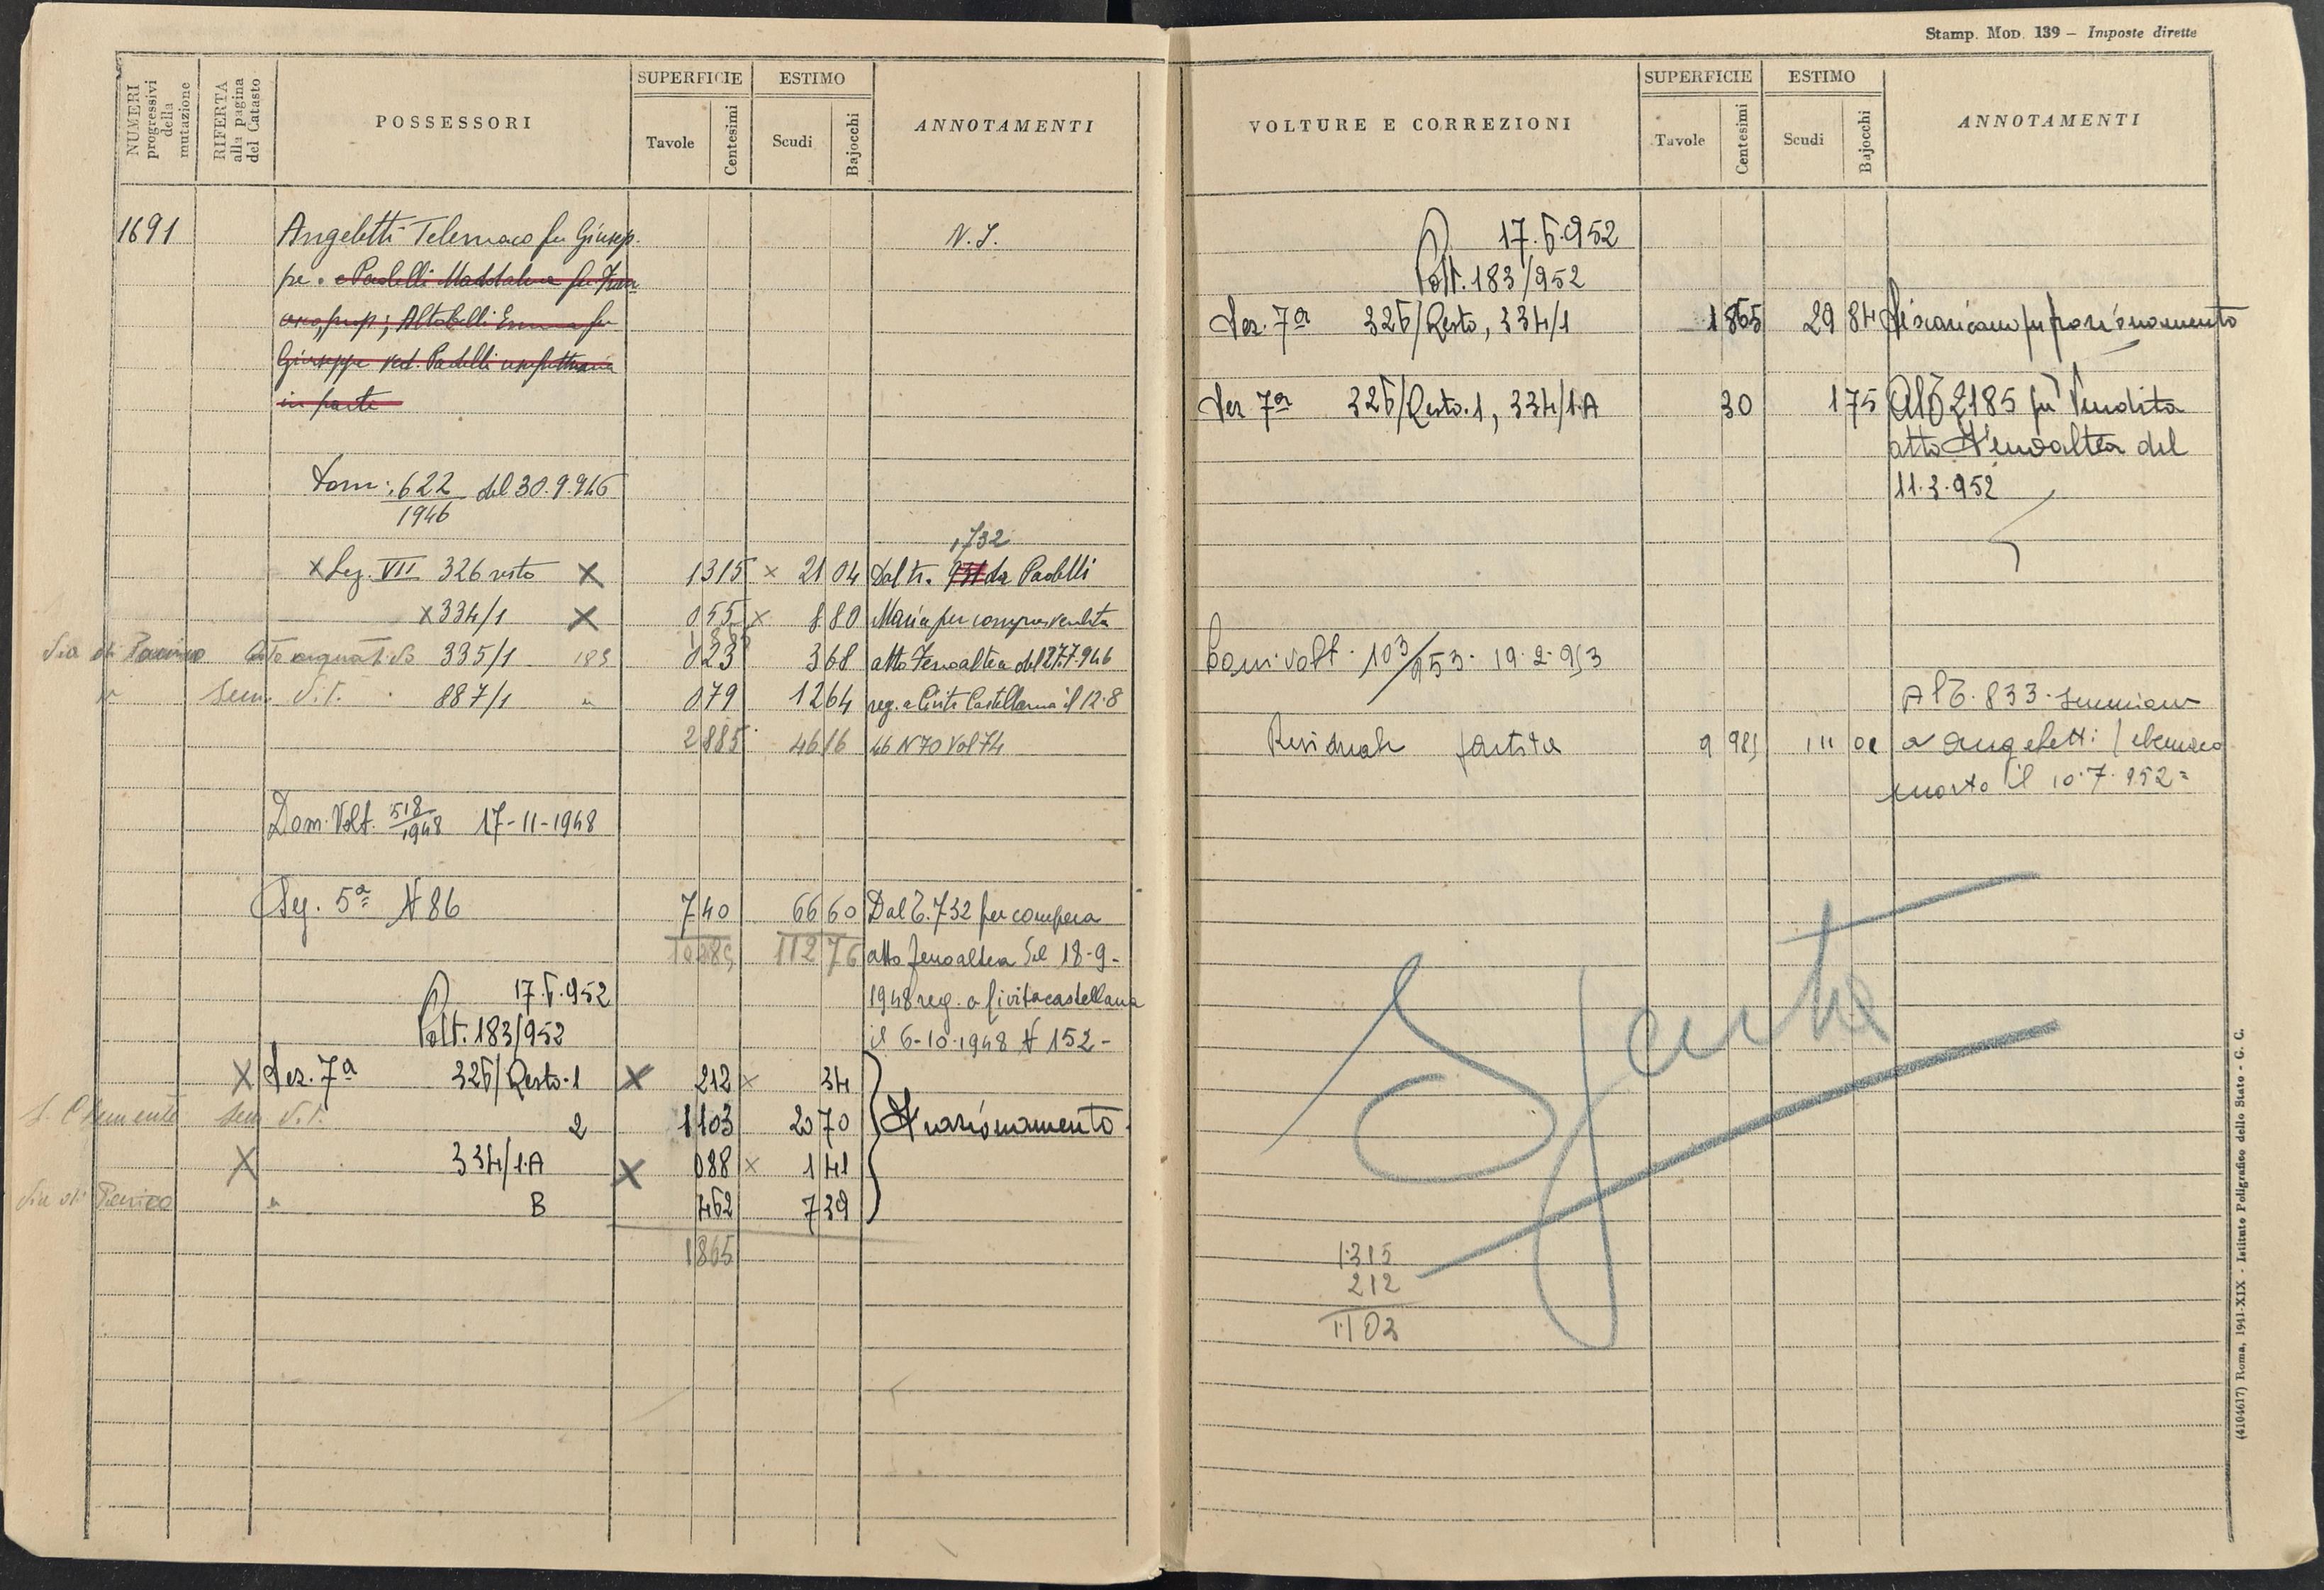 Stamp. MOD. 139 – Imposte dirette
NUMERI progressivi della mutazione
RIFERTA alla pagina del Catasto
POSSESSORI
SUPERFICIE
Tavole
Centesimi
ESTIMO
Scudi
Bajocchi
ANNOTAMENTI
1691
Angeletti Telemaco fu Giusep. N. I.
pe. e Paolelli Maddalena fu Fran
prop; Altobelli Emma fu
Giuseppe ved. Paolelli usufruttuaria
in parte
Dom. 622/1946 del 30.9.946
1732
X Sez. VII 326 resto X 13 15 X 21 04 Dal tr. da Paolelli
X 334/1 X 0 55 X 8 80 Maria per compravendita
188
335/1 185 0 23 3 68 atto Fenoaltea del 27.7.946
" Sem. V.T. 887/1 " 0 79 12 64 reg. a Civita Castellana il 12.8
28 85 46 16 46 N 70 Vol 74
Dom. Volt. 518/1948 17-11-1948
Sez. 5ª N 86 7 40 66 60 Dal T. 732 per compera
102 85 112 76 atto Fenoaltea del 18-9-
1948 reg. a Civitacastellana
17.5.952 il 6-10-1948 N 152-
Volt. 183/952
X Sez. 7ª 326/Resto.1 X 2 12 X 34
S. Clemente Sem. V.T. 2 11 03 20 70 Frazionamento.
X 334/1.A X 0 88 X 1 41
" B 4 62 7 39
18 65
VOLTURE E CORREZIONI
SUPERFICIE
Tavole
Centesimi
ESTIMO
Scudi
Bajocchi
ANNOTAMENTI
17.5.952
Volt. 183/952
Sez. 7ª 326/Resto, 334/1 18 65 29 84 Si scaricano per frazionamento
Sez 7ª 326/Resto.1, 334/1.A 3 0 1 75 Al T 2185 per Vendita
atto Fenoaltea del
11.3.952
Dom. Volt. 103/953. 19.2.953
Al T. 833.
Residuale partita 9 985 111 01 a Angeletti Telemaco
morto il 10.7.952=
Spenta
1315
212
1103
(4104617) Roma, 1941-XIX - Istituto Poligrafico dello Stato - G. C.